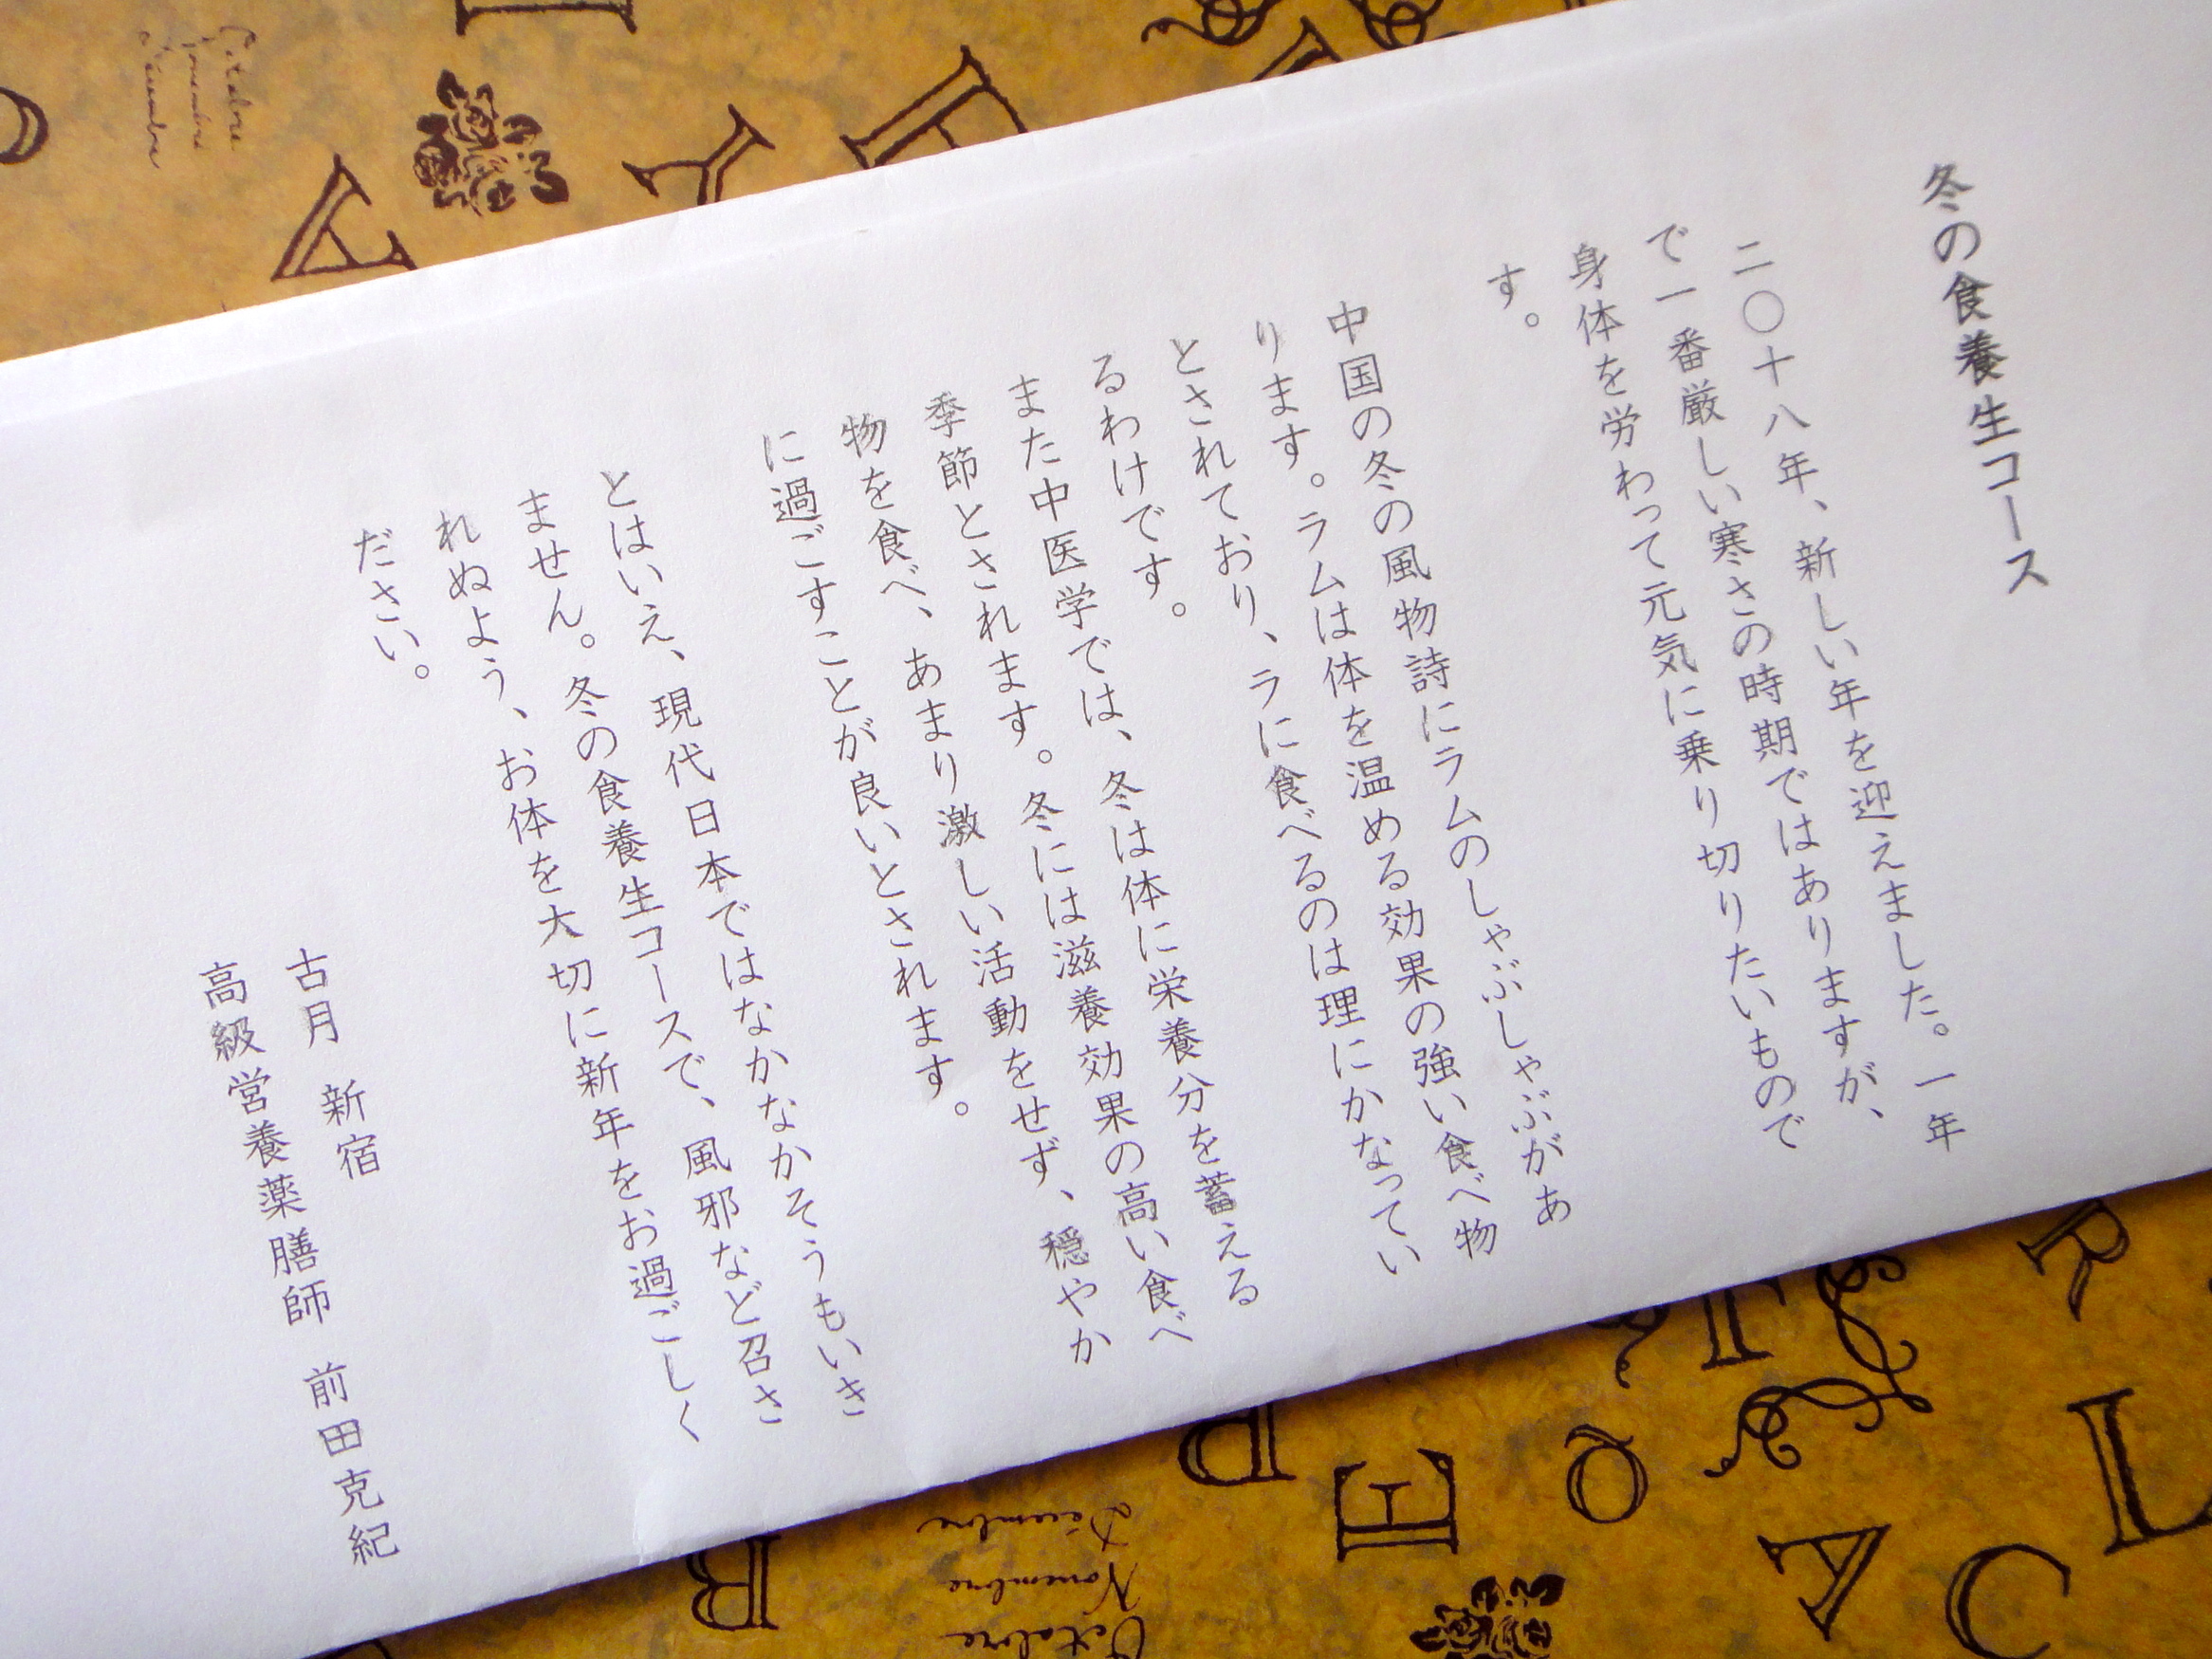 冬の食養生コース
二〇十八年、新しい年を迎えました。一年
で一番厳しい寒さの時期ではありますが、
身体を労わって元気に乗り切りたいもので
す。
中国の冬の風物詩にラムのしゃぶしゃぶがあ
ります。ラムは体を温める効果の強い食べ物
とされており、ラに食べるのは理にかなってい
るわけです。
また中医学では、冬は体に栄養分を蓄える
季節とされます。冬には滋養効果の高い食べ
物を食べ、あまり激しい活動をせず、穏やか
に過ごすことが良いとされます。
とはいえ、現代日本ではなかなかそうもいき
ません。冬の食養生コースで、風邪など召さ
れぬよう、お体を大切に新年をお過ごしく
ださい。
古月 新宿
高級営養薬膳師 前田克紀
Octobre
Novembre
Décembre
A
Y
E
R
L
C
A
Q
E
B
Décembre
Novembre
Octobre